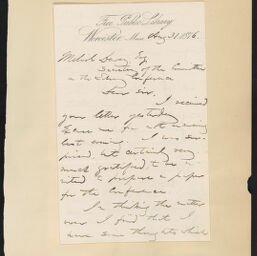 Free Public Library,
Worcester, Mass. Aug 31 1876.
Melvil Dewey Esq
Secretary of the Committee
on the Library Conference
Dear Sir,
I received
your letter yesterday.
Excuse me for not answering
last evening. I was sur-
prised, but certainly very
much gratified to be in-
vited to prepare a paper
for the Conference.
In thinking the matter
over I find that I
have some thoughts which